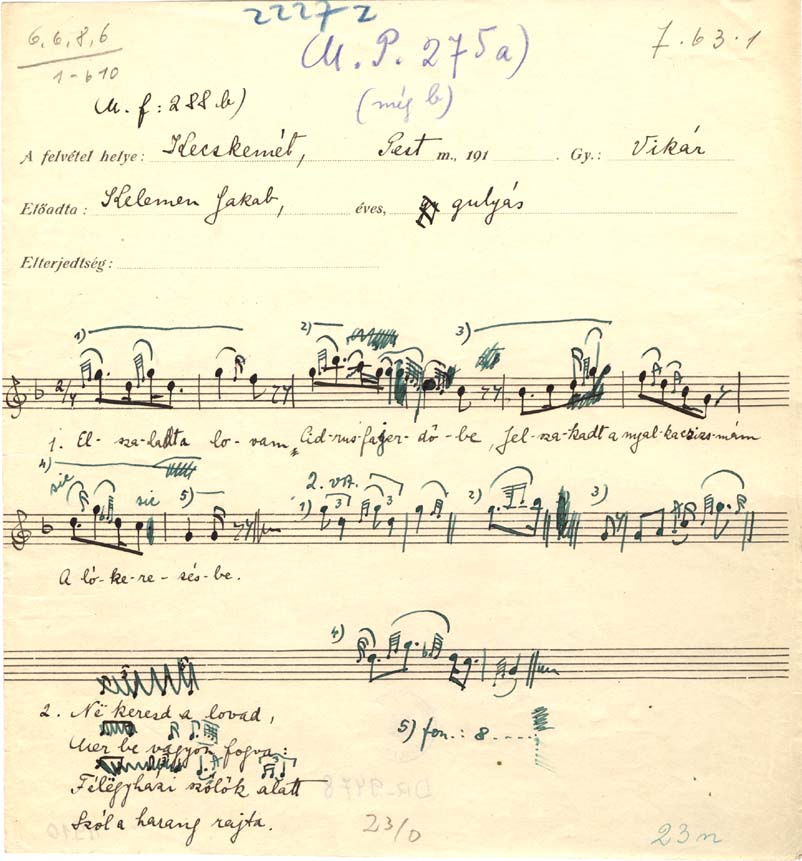 22272
6, 6, 8, 6
1-b10
M. P. 275a)
7.63.1
M. f: 288.b)
(még b)
A felvétel helye: Kecskemét, Pest m., 191 . Gy.: Vikár
Előadta: Kelemen Jakab, éves, gulyás
Elterjedtség:
1) 2) 3)
2/4
1. El-sza-ladta lo-vam Cid-rus-fa er-dő-be, Jel-sza-kadt a nyal-ka csizs-mám
4) sic sic 5) 2. vsz. 1) 3 3 2) 3)
A ló-ke-re-sés-be.
4)
2. Në keresd a lovad,
Mer be vagyon fogva:
Félëgyházi szőlők alatt
Szól a harang rajta.
5) fon.: 8
DR-9478
23/0
23n